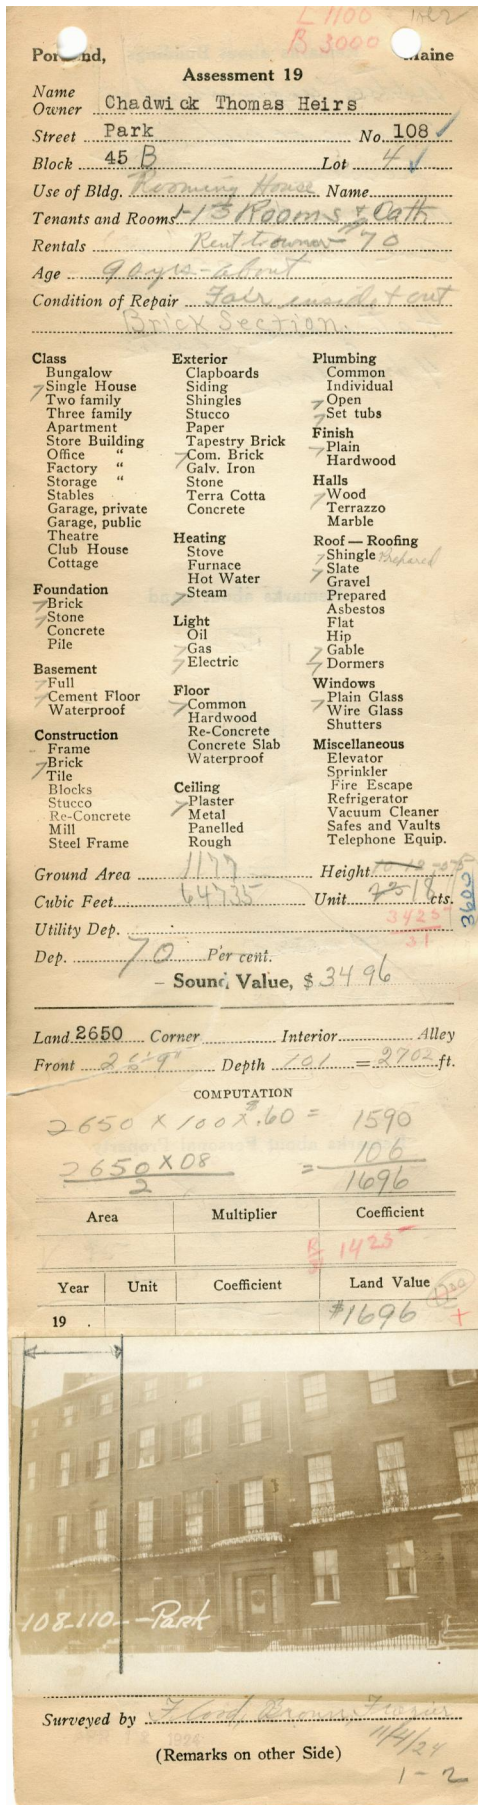 L 1100
B 3000
Portland, Maine
Assessment 19
Name
Owner Chadwick Thomas Heirs
Street Park No. 108 ✓
Block 45 B Lot 4 ✓
Use of Bldg. Rooming House Name
Tenants and Rooms 1-13 Rooms & Bath
Rentals Rent to owner - 70
Age 90 yrs - about
Condition of Repair Fair inside & out
Brick Section.
Class
Bungalow
Single House
Two family
Three family
Apartment
Store Building
Office "
Factory "
Storage "
Stables
Garage, private
Garage, public
Theatre
Club House
Cottage
Foundation
Brick
Stone
Concrete
Pile
Basement
Full
Cement Floor
Waterproof
Construction
Frame
Brick
Tile
Blocks
Stucco
Re-Concrete
Mill
Steel Frame
Exterior
Clapboards
Siding
Shingles
Stucco
Paper
Tapestry Brick
Com. Brick
Galv. Iron
Stone
Terra Cotta
Concrete
Heating
Stove
Furnace
Hot Water
Steam
Light
Oil
Gas
Electric
Floor
Common
Hardwood
Re-Concrete
Concrete Slab
Waterproof
Ceiling
Plaster
Metal
Panelled
Rough
Plumbing
Common
Individual
Open
Set tubs
Finish
Plain
Hardwood
Halls
Wood
Terrazzo
Marble
Roof — Roofing
Shingle Prepared
Slate
Gravel
Prepared
Asbestos
Flat
Hip
Gable
Dormers
Windows
Plain Glass
Wire Glass
Shutters
Miscellaneous
Elevator
Sprinkler
Fire Escape
Refrigerator
Vacuum Cleaner
Safes and Vaults
Telephone Equip.
Ground Area 1177 Height
Cubic Feet 64735 Unit 18 cts.
3600
Utility Dep. 3425
31
Dep. 70 Per cent.
– Sound Value, $ 3496
Land 2650 Corner Interior Alley
Front 26'-9" Depth 101 = 2702 ft.
COMPUTATION
2650 x 100 x $.60 = 1590
2650 x 08 / 2 = 106
1696
Area Multiplier Coefficient
1425
Year Unit Coefficient Land Value
19 . $1696 +
108-110 -- Park
Surveyed by Flood, Brown, Frazier
11/4/24
(Remarks on other Side)
1-2